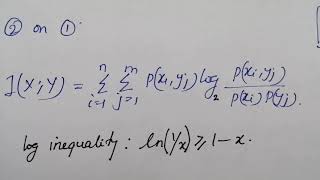 ② on ①.
I(X;Y) = n∑i=1 m∑j=1 P(xi,yj) log2 P(xi,yj) / P(xi)P(yj).
log inequality: ln(1/x) ≥ 1-x.